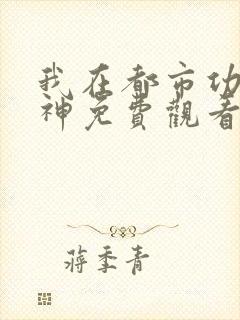 我在都市功
神免費觀看
蔣季青